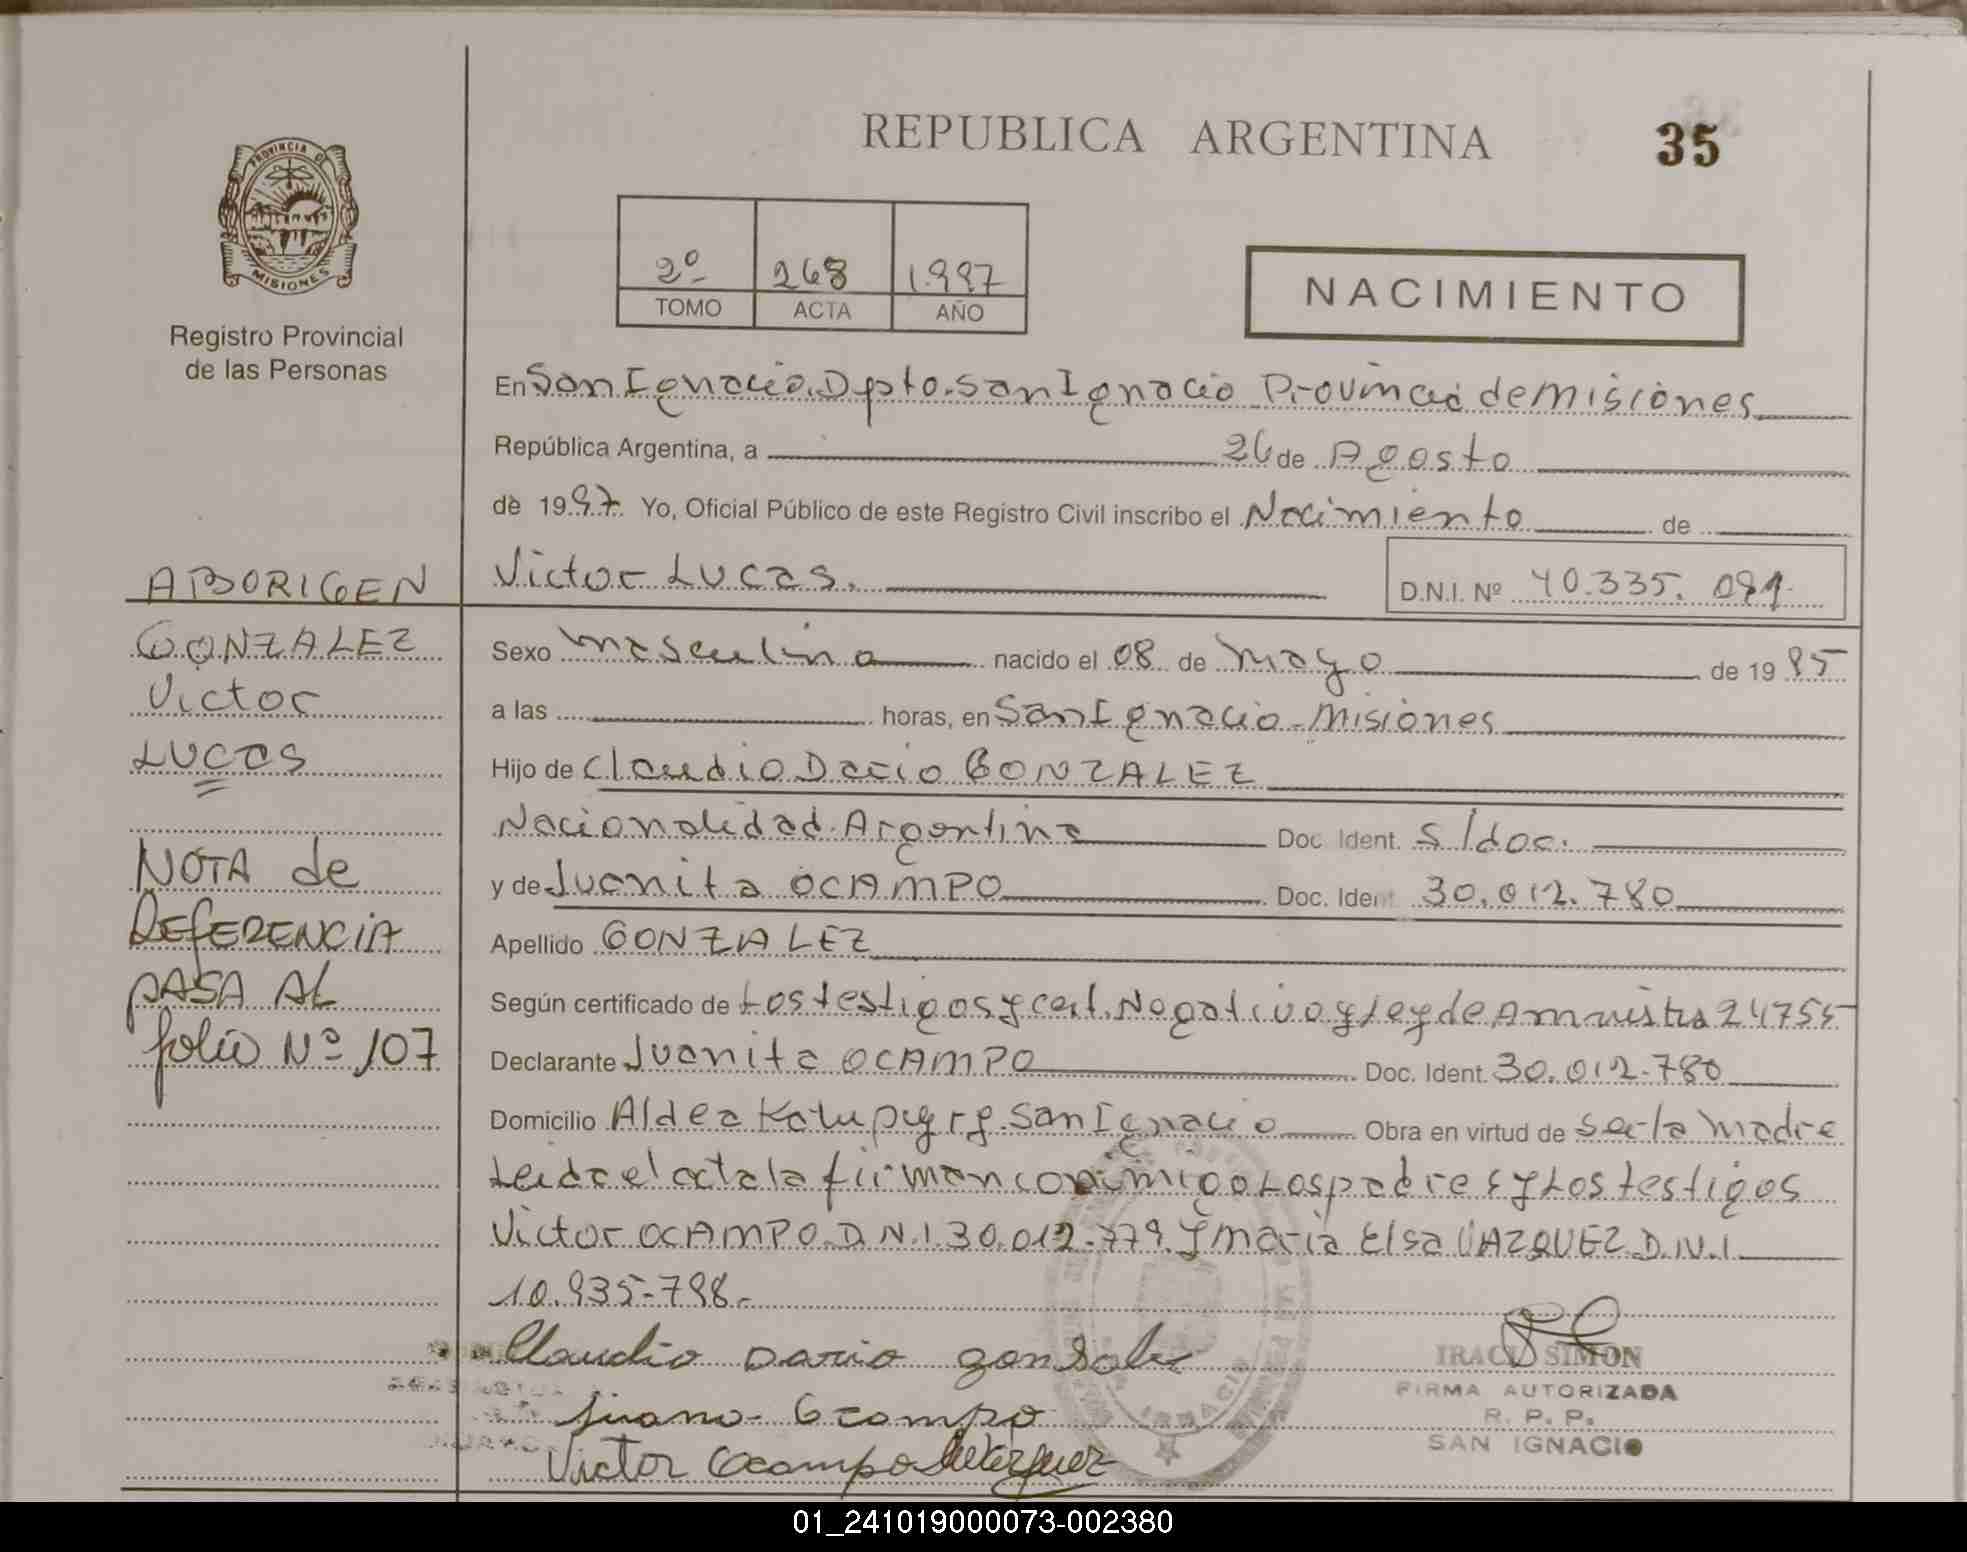 REPUBLICA ARGENTINA
35
PROVINCIA DE
MISIONES
Registro Provincial
de las Personas
2º 268 1.997
TOMO ACTA AÑO
NACIMIENTO
En San Ignacio. Dpto. San Ignacio Provincia de Misiones
República Argentina, a 26 de Agosto
de 1997. Yo, Oficial Público de este Registro Civil inscribo el Nacimiento de
Victor Lucas.
D.N.I. Nº 40.335.
ABORIGEN
GONZALEZ
Victor
Lucas
NOTA de
REFERENCIA
PASA AL
folio Nº 107
Sexo masculino nacido el 08 de mayo de 1995
a las horas, en San Ignacio - Misiones
Hijo de Claudio Dario GONZALEZ
Nacionalidad Argentina Doc. Ident. s/doc.
y de Juanita OCAMPO Doc. Ident. 30.012.780
Apellido GONZALEZ
Según certificado de Los testigos y cert. Negativo y Ley de Amnistia 24755
Declarante Juanita OCAMPO Doc. Ident. 30.012.780
Domicilio Aldea San Ignacio Obra en virtud de ser la madre
Leida el acta la firman conmigo Los padres y Los testigos
Victor OCAMPO D.N.I. 30.012.779. y maria Elsa VAZQUEZ D.N.I.
10.935.798.
Claudio Dario gonsale
juana Ocampo
Victor Ocampo
IRACI SIMON
FIRMA AUTORIZADA
R. P. P.
SAN IGNACIO
01_241019000073-002380